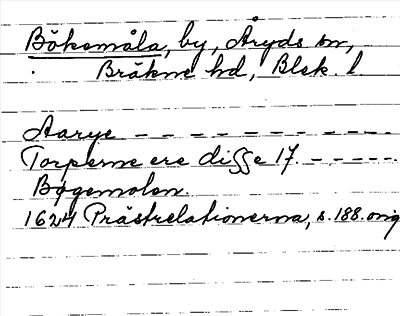 Böksmåla, by, Åryds sn,
Bräkne hd, Blek. l.
Aarye - - - - - - - - - -
Torperne ere disse 17. - - - - -
Bøgemolen.
1624 Prästrelationerna, s. 188. orig